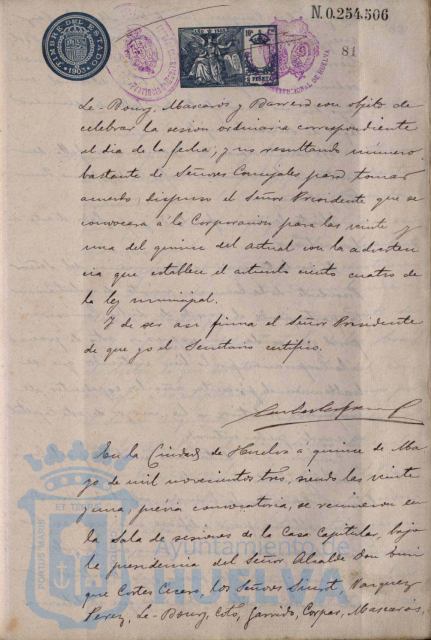 N.0.254.506
TIMBRE DEL ESTADO
1903
81
Le-Bourg, Mascarós y Barrera con objeto de
celebrar la sesión ordinaria correspondiente
al día de la fecha; y no resultando número
bastante de Señores Concejales para tomar
acuerdo, dispuso el Señor Presidente que se
convocara á la Corporación para las veinte y
una del quince del actual con la adverten
cia que establece el artículo ciento cuatro de
la ley municipal.
Y de ser así firma el Señor Presidente
de que yo el Secretario certifico.
En la Ciudad de Huelva a quince de Ma
yo de mil novecientos tres, siendo las veinte
y una, previa convocatoria, se reunieron en
la Sala de sesiones de la Casa Capitular, bajo
la presidencia del Señor Alcalde Don
que Cortes Cesero, los Señores Vazquez
Perez, Le-Bourg, Coto, Garrido, Corpas, Mascarós,
Ayuntamiento de
HUELVA
PORTUS MARIS
ET TER